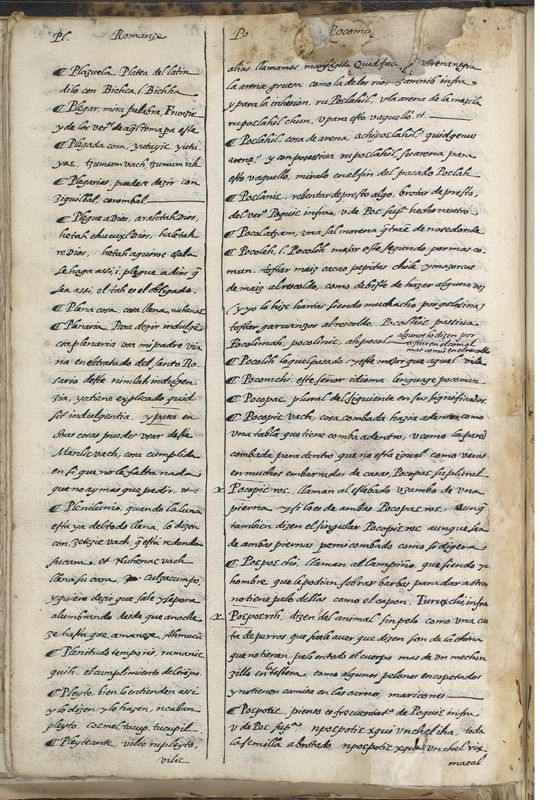 Pl. Romanze
¶ Plazuela. Platea del latin
dilo con Bichca, l. Bichha
¶ Plegar, mira palabra, Frunzir
y de los verᵒˢ de aqͥ toma pa este
¶ Plegada cosa, yutuyic yutu
yas, tzunum vach, tzunum rih
¶ Plegarias, puedese dezir con
ziquibal. corombal
¶ Plegue a Dios,
re Dios,
se haga assi; plegue a dios q̃
sea assi, el tah es el obligado.
¶ Plena cosa, cosa llena, nuhenac
¶ Plenaria. Para dezir indulgẽ
cia plenaria usa mi padre Via
na en el tratado del santo Ro
sario deste nimlah indulgen
zia, ya tiene explicado quid
sit indulgentia. y para en
otras cosas puedes usar deste
Manlic vach, cosa cumplida
en si, que no le falta nada
que no ay mas que pedir, et.
¶ Plenilunio, quando la luna
esta ya del todo llena, lo dizen
con zetezic vach, q̃ esta redonda
su cara, et Nuhenac vach
llena su cara,
y quiere dezir que sale y se pone
alumbrando desde que anoche
ze hasta que amaneze,
¶ Plenitudo temporis, rumanic
quih. el cumplimiento del tiẽpo.
¶ Pleyto, bien lo entienden assi
y lo dizen y lo hazen, ncaban
pleyto. cosmel tucup, tucupil
¶ Pleyteante, vilic ru pleyto,
vilic
Po Pocoma
alias llamamos
la arena gruesa como la de los rios infra
y para la inhesion, ru Poclahil, vla arena de la mezcla
ru poclahil chun, v para esto vaquello. et
¶ Poclahil, cosa de arena, achipoclahilᵒ. quid genus
arenęᵒ y con posesiva ru poclahil su arena para
esto vaquello, miralo en el fin del pasado Poclah
¶ Poclanic, rebentar de presto algo, brotar de presto,
del verᵒ Poquic infra, v de Poc supᵃ. hecho neutro
¶ Pocolatzam, una sal morena q̃ traẽ de no se donde
¶ Pocoleh, l. Pocolih mejor este segundo, por mas co
mun. tostar maiz cacao pepitas chile y mazorcas
de maiz al rescoldo, como debiste de hazer alguna vez
(y yo la hize hartas siendo muchacho, por golosina)
tostar garvanzos al rescoldo. Pocolhic passiva
Pocolimah, pocolinic, ah pocol algunos lo dizen por
tostar en el comal
mas comun es el rescoldo
¶ Pocolih lo que el pasado y este mejor que aquel
¶ Pocomchi. este señor idioma lenguaje pocoman
¶ Pocopac plural del siguiente en sus significados
¶ Pocopic vach, cosa combada hazia adentro, como
una tabla que tiene comba adentro, v como la pared
combada para dentro que no esta igual como vemos
en muchos embarrados de casas, Pocopac su plural
x Pocopic roc, llaman al estebado v zambo de una
pierna y si lo es de ambas Pocopac roc. aunq̃
tambien dizen el singular Pocopic roc aunque sea
de ambas piernas perni combado como si dixera
¶ Pospos chi, llaman al lampiño, que siendo ya
hombre que le podian sobrar barbas para dar a otros
no tiene pelo dellas como el capon. Turux chi, infra
x Pospocrih, dizen del animal sin pelo como una cas
ta de perros que suele aver que dizen son de la china
que no tienen pelo en todo el cuerpo mas de un mechon
zillo en la testera como algunos pelones encopetados
y no tienen camisa en las carnes, maricones
¶ Pospotic, pienso es frecuentatᵒ de Poquic infra
v de Poc supᵃ. npospotic xqui vnchel iha, toda
la semilla a brotado, npospotic xqui vnchel rix
maeal